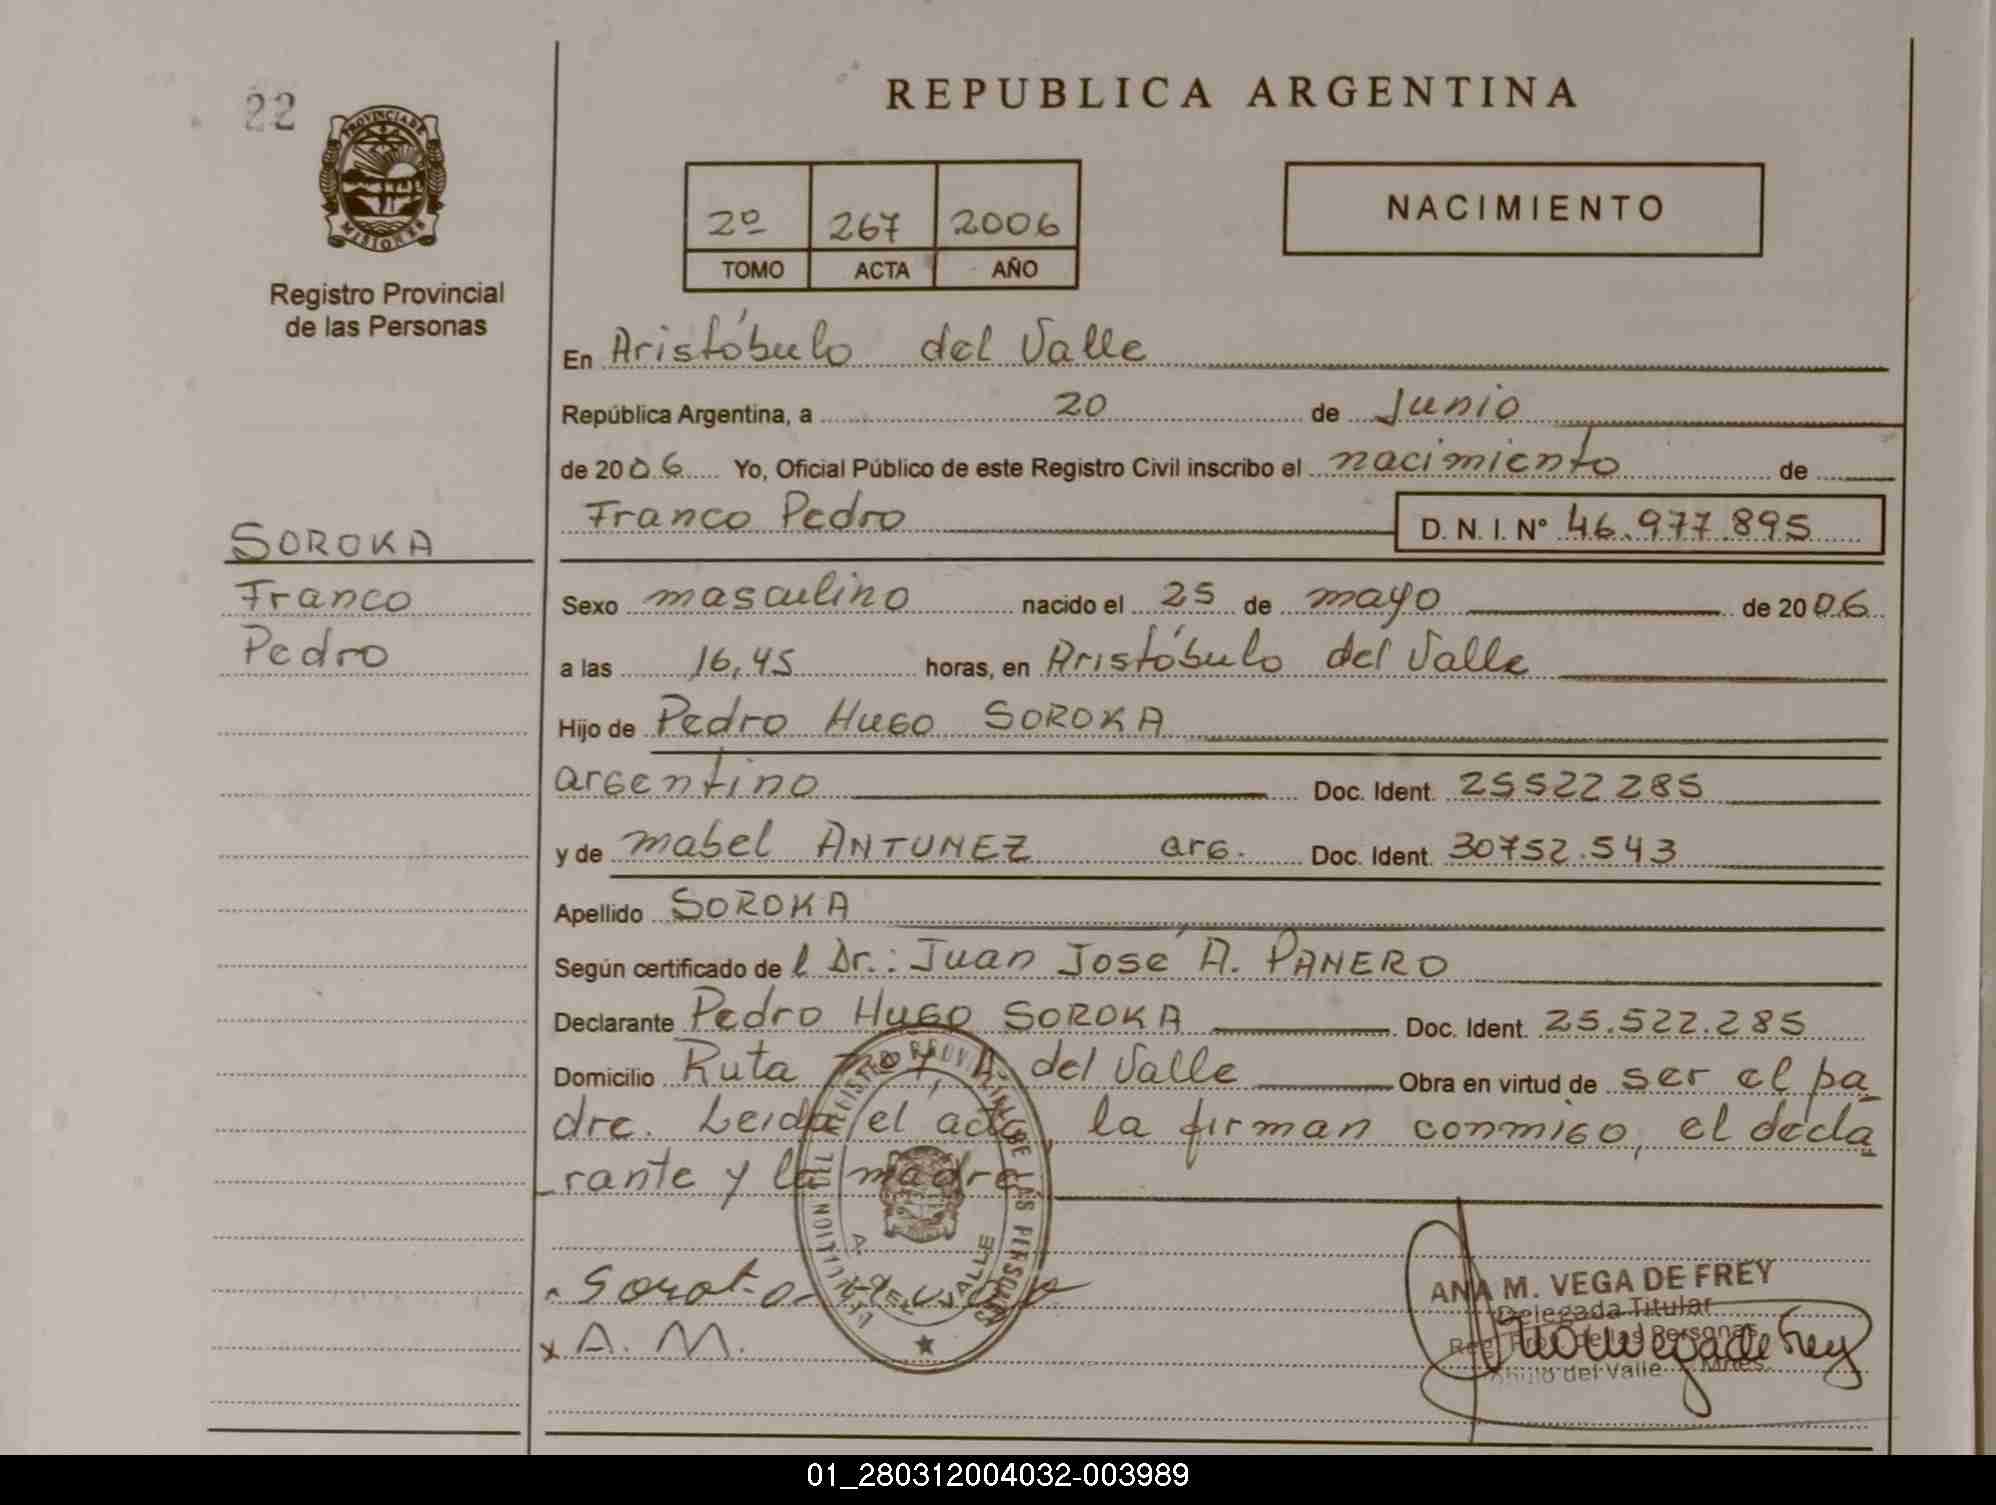 22
PROVINCIA DE
MISIONES
Registro Provincial
de las Personas
REPUBLICA ARGENTINA
2º 267 2006
TOMO ACTA AÑO
NACIMIENTO
En Aristóbulo del Valle
República Argentina, a 20 de Junio
de 2006 Yo, Oficial Público de este Registro Civil inscribo el nacimiento de
Franco Pedro D. N. I. Nº 46.977.895
SOROKA
Franco
Pedro
Sexo masculino nacido el 25 de mayo de 2006
a las 16,45 horas, en Aristóbulo del Valle
Hijo de Pedro Hugo SOROKA
argentino Doc. Ident. 25522285
y de mabel ANTUNEZ arg. Doc. Ident. 30752.543
Apellido SOROKA
Según certificado de l Dr.: Juan José A. PANERO
Declarante Pedro Hugo SOROKA Doc. Ident. 25.522.285
Domicilio Ruta nº7, A. del Valle Obra en virtud de ser el pa
dre. Leida el acta, la firman conmigo, el decla
rante y la madre
A. M.
ANA M. VEGA DE FREY
Delegada Titular
Reg. Prov. de las Personas
del Valle Mnes.
01_280312004032-003989